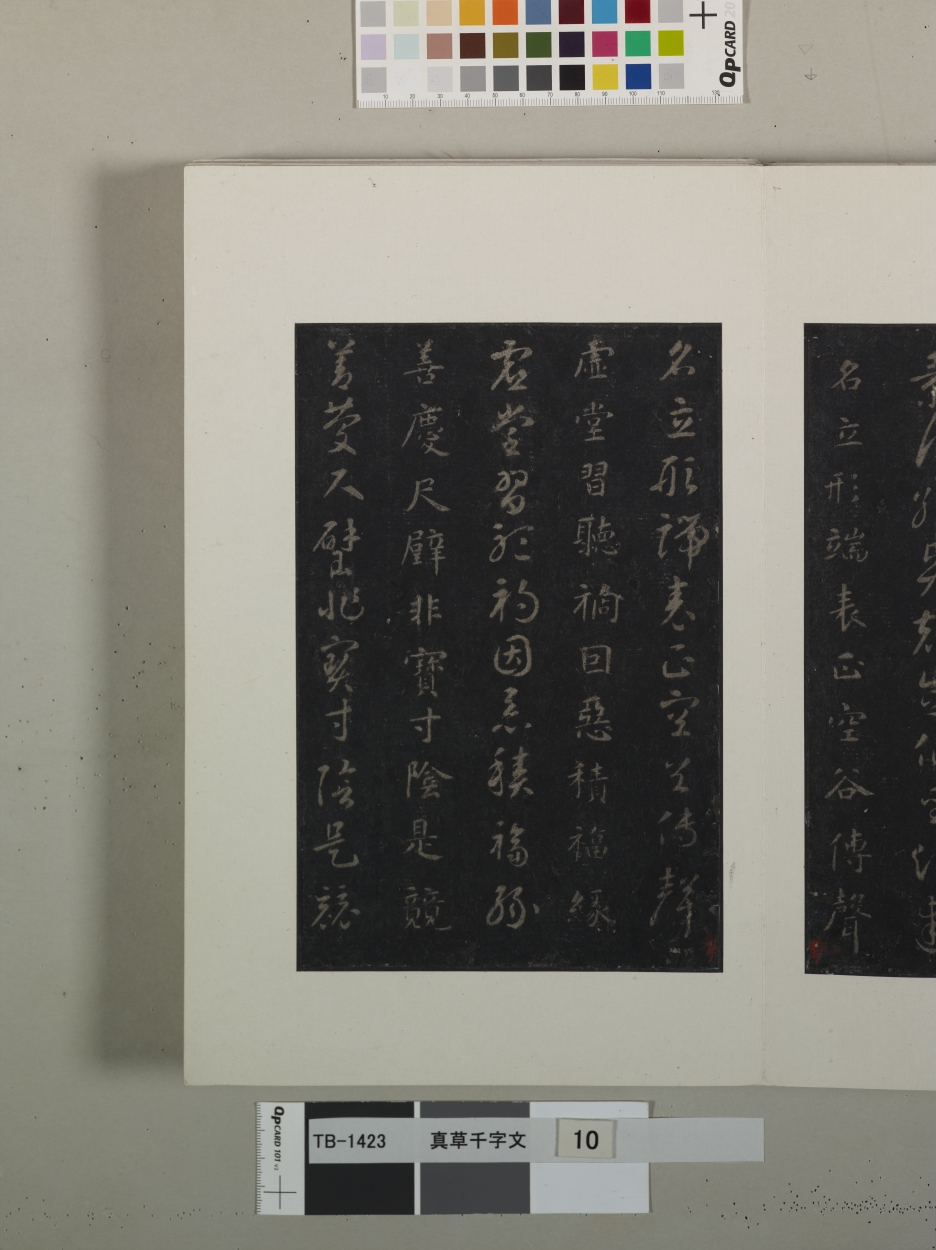 QPCARD 20
10 20 30 40 50 60 70 80 90 100 110 130
名立形端表正空谷傳聲
名立形端表正空谷傳聲
虛堂習聽禍因惡積福緣
虛堂習聽禍因惡積福緣
善慶尺璧非寶寸陰是競
善慶尺璧非寶寸陰是競
QPCARD 101 v3
TB-1423 真草千字文 10